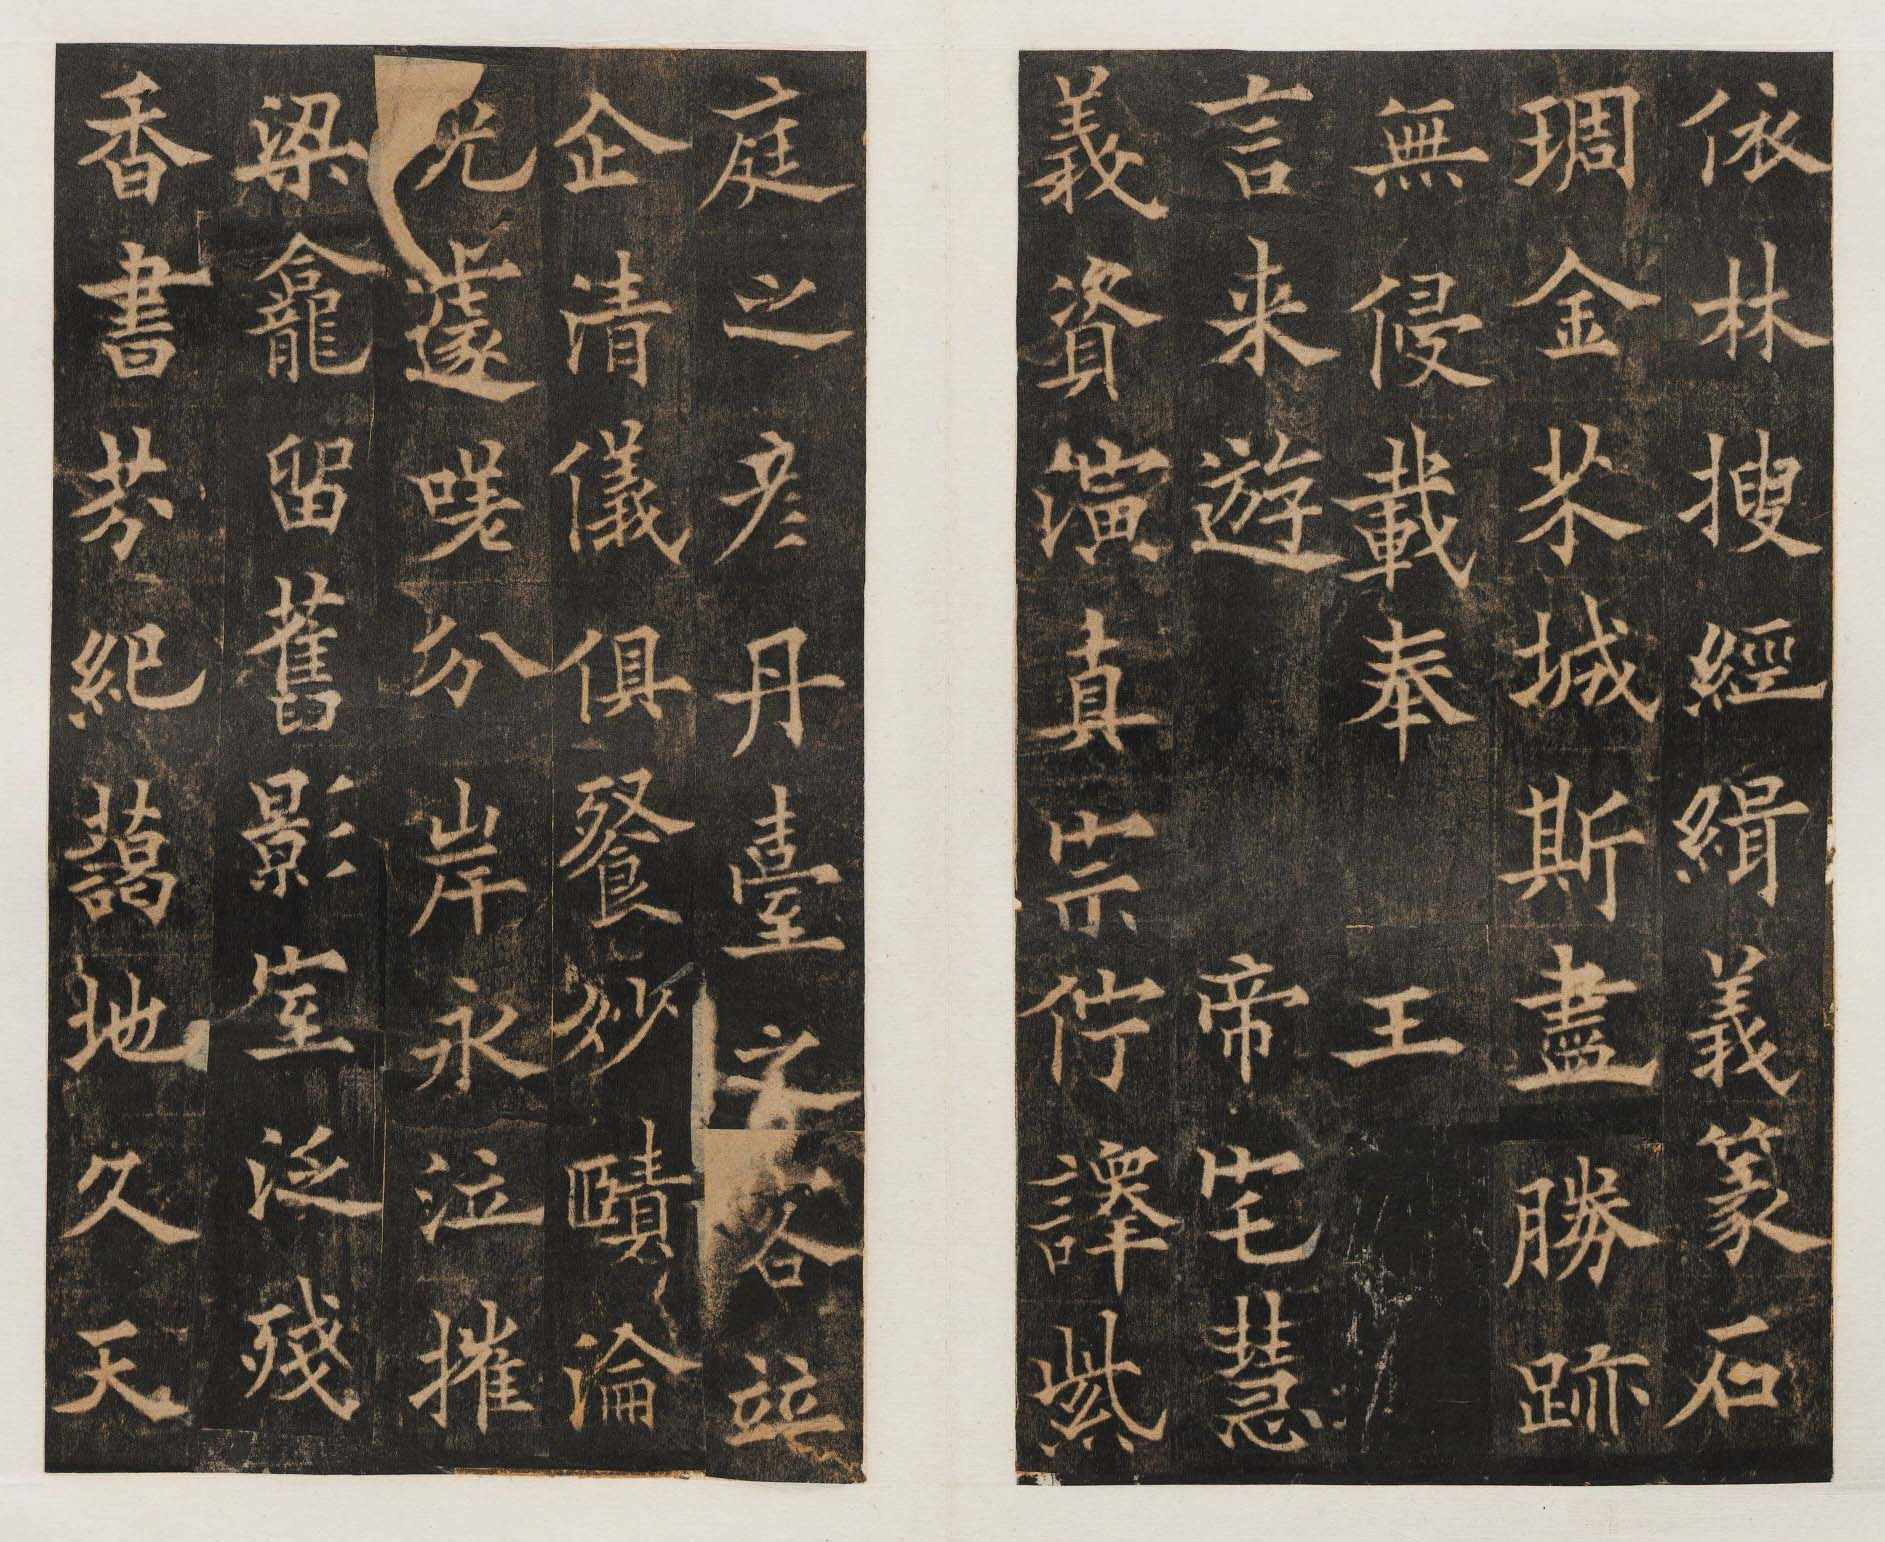 依林搜經緝義篆石
琱金芥城斯盡勝跡
無侵載奉　王
言来遊　帝宅慧
義資演真宗佇譯紫
庭之彥丹臺之客竝
企清儀俱餐妙賾淪
光遽嗟分岸永泣摧
梁龕留舊影室泛殘
香書芬紀藹地久天